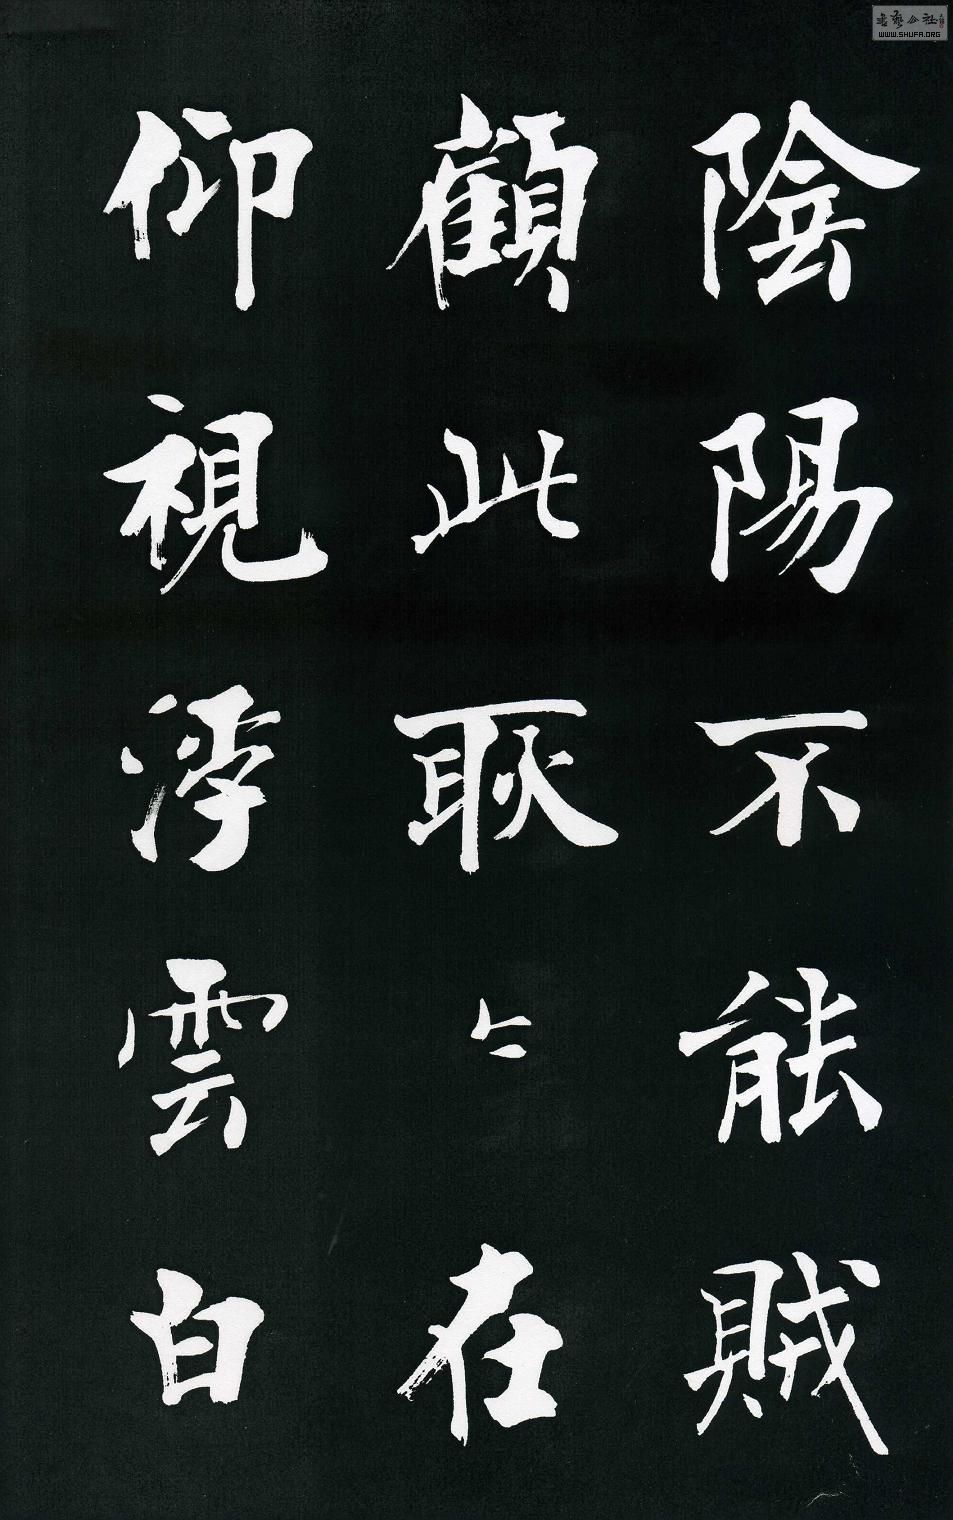 陰陽不能賊
顧此耿〻在
仰視浮雲白
書藝公社
WWW.SHUFA.ORG